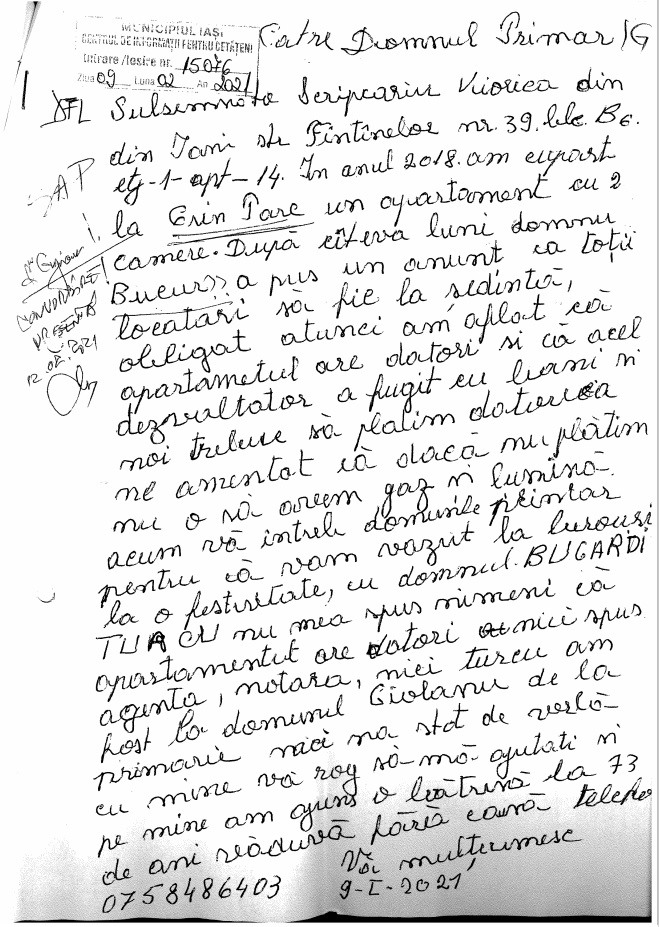 MUNICIPIUL IAȘI
CENTRUL DE INFORMAȚII PENTRU CETĂȚENI
Intrare /Iesire nr. 15076
Ziua 09 Luna 02 An 2021
Catre Domnul Primar IG
Subsemnata Scripcariu Viorica din
din Iasi str Fintinelor nr. 39. bloc B6.
etj-1-apt-14. In anul 2018. am cuparat
la Grin Parc un apartament cu 2
camere. După cîteva luni domnu
Bucur a pus un anunt ca toții
locatari să fie la sedintă,
obligat atunci am aflat că
apartametul are datori si că acel
dezvaltator a fugit cu bani si
noi trebuie să platim datoria
ne amentat că dacă nu plătim
nu o să avem gaz si lumină.
acum vă intreb domnule primar
pentru că vam vazut la birouri
la o festivitate, cu domnul BUGARDI
TURCU nu mea spus nimeni că
apartamentul are datori nici spus
agenta, notara, nici turcu am
fost la domnul Ciolanu de la
primarie nici na stat de vorbă
cu mine vă rog să-mă ajutati si
pe mine am ajuns o bătrînă la 73
de ani văduvă fără casă telefo
0758486403 Vă multumesc
9-I-2021
SAP
CONVORBIRE
PREZENTA
12.02.2021